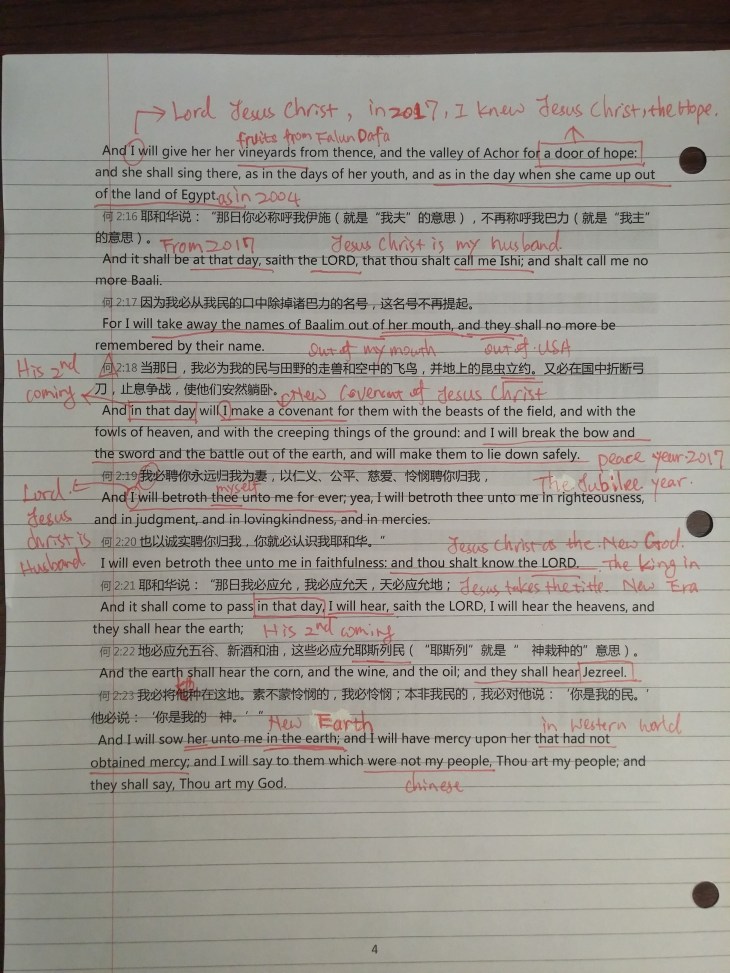 Lord Jesus Christ, in 2017, I knew Jesus Christ, the Hope.
fruits from Falun Dafa
And I will give her her vineyards from thence, and the valley of Achor for a door of hope:
and she shall sing there, as in the days of her youth, and as in the day when she came up out
of the land of Egypt. as in 2004
何 2:16 耶和华说：“那日你必称呼我伊施（就是“我夫”的意思），不再称呼我巴力（就是“我主”
的意思）。 From 2017 Jesus Christ is my husband.
And it shall be at that day, saith the LORD, that thou shalt call me Ishi; and shalt call me no
more Baali.
何 2:17 因为我必从我民的口中除掉诸巴力的名号，这名号不再提起。
For I will take away the names of Baalim out of her mouth, and they shall no more be
remembered by their name. out of my mouth out of USA
His 2nd coming
何 2:18 当那日，我必为我的民与田野的走兽和空中的飞鸟，并地上的昆虫立约。又必在国中折断弓
刀，止息争战，使他们安然躺卧。 New Covenant of Jesus Christ
And in that day will I make a covenant for them with the beasts of the field, and with the
fowls of heaven, and with the creeping things of the ground: and I will break the bow and
the sword and the battle out of the earth, and will make them to lie down safely. peace year 2017
何 2:19 我必聘你永远归我为妻，以仁义、公平、慈爱、怜悯聘你归我， The Jubilee year.
Lord Jesus Christ is Husband
myself
And I will betroth thee unto me for ever; yea, I will betroth thee unto me in righteousness,
and in judgment, and in lovingkindness, and in mercies.
何 2:20 也以诚实聘你归我，你就必认识我耶和华。” Jesus Christ as the New God.
I will even betroth thee unto me in faithfulness: and thou shalt know the LORD. The king in
何 2:21 耶和华说：“那日我必应允，我必应允天，天必应允地； Jesus takes the title. New Era
And it shall come to pass in that day, I will hear, saith the LORD, I will hear the heavens, and
they shall hear the earth; His 2nd coming
何 2:22 地必应允五谷、新酒和油，这些必应允耶斯列民（“耶斯列”就是“ 神栽种的”意思）。
And the earth shall hear the corn, and the wine, and the oil; and they shall hear Jezreel.
何 2:23 我必将他种在这地。素不蒙怜悯的，我必怜悯；本非我民的，我必对他说：‘你是我的民。’
他必说：‘你是我的 神。’” New Earth in Western World
And I will sow her unto me in the earth; and I will have mercy upon her that had not
obtained mercy; and I will say to them which were not my people, Thou art my people; and
they shall say, Thou art my God. chinese
4